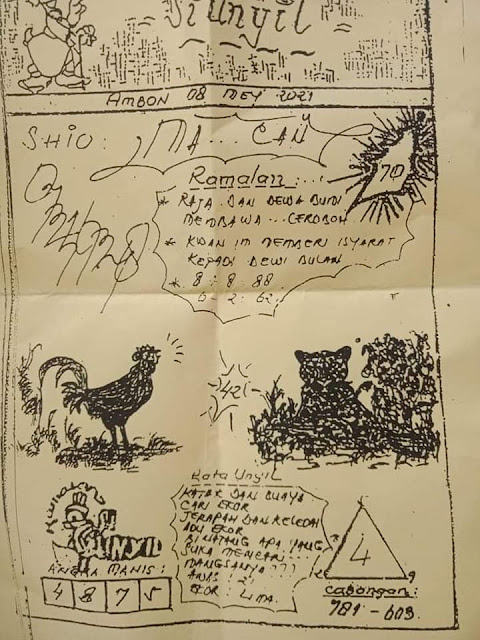 Si Unyil
AMBON 08 MEY 2021
SHIO:
MA... CAN
70
Ramalan:...
* RAJA DAN DEWA BUMI
MEMBAWA... CEROBOH
* KWAN IM MEMBERI ISYARAT
KEPADA DEWI BULAN
* 8 : 8 . 88
6 - 2 : 62
42
Kata Unyil
KATAK DAN BUAYA
CARI EKOR
JERAPAH DAN KELEDAI
ADU EKOR
BINATANG APA YANG
SUKA MENCARI
MANGSANYA ???
AWAS ! 2!
EKOR : LIMA.
UNYIL
ANGKA MANIS:
4 8 7 5
4
9
Cabangan:
781 - 603